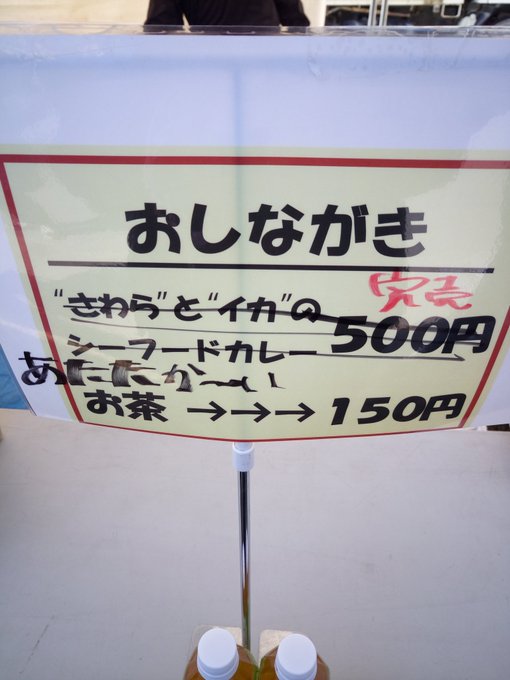 おしながき
完売
"さわら"と"イカ"の
シーフードカレー 500円
あたたか〜い
お茶 →→→ 150円